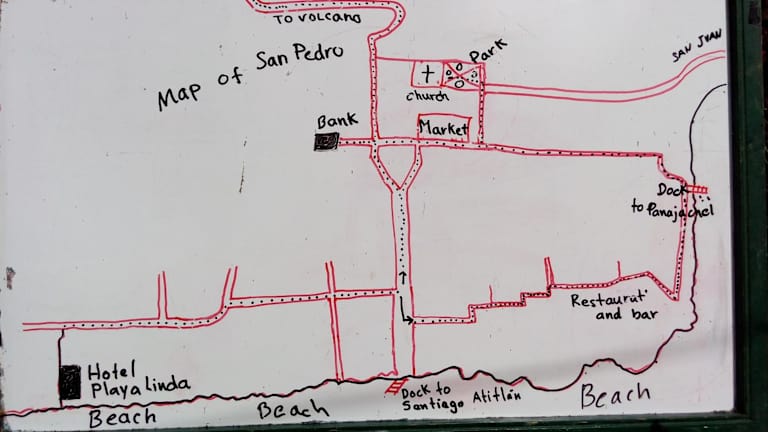 TO VOLCANO
Map of San Pedro
Park
SAN JUAN
church
Bank
Market
Dock
to Panajachel
Restaurut
and bar
Hotel
Playa Linda
Dock to
Santiago Atitlán
Beach
Beach
Beach